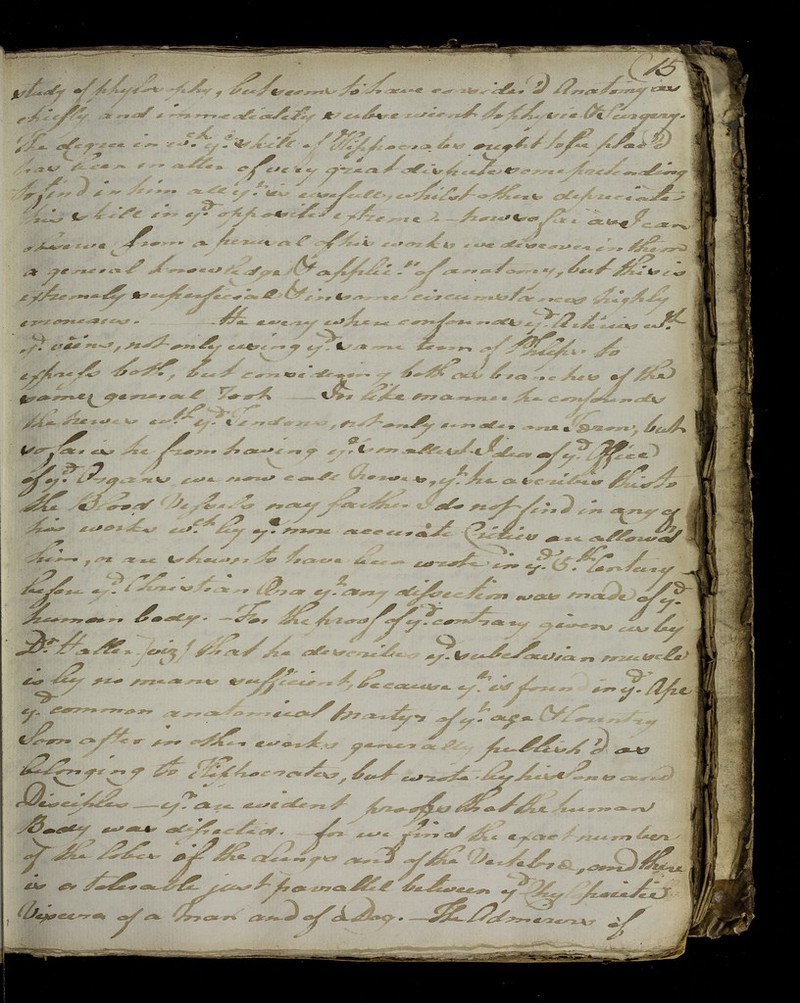 15
study of phylosophy, but seems to have consider'd Anatomy as
chiefly and immediately subservient to physic & Surgery.
The degree in wch. ye. skill of Hippocrates ought to be plac'd
has been matter of very great dispute some pretending
to find in him all yt. is usefull, whilst others depreciate
his skill in ye. opposite extreme. — howsofar as I can
observe from a perusal of his works we discover in them
a general knowledge & applicn. of anatomy, but this is
extremely superficial & in some circumstances highly
erroneous. He every where confounds ye. Arteries wt.
ye. veins, not only using ye. same term of Phleps to
express both, but considering both as branches of the
same general Root — In like manner he confounds
the nerves wth. ye. Tendons, not only under one Term, but
so far is he from having ye. smallest Idea of ye. Office
of ye. Organs we now call Nerves, yt. he ascribes this to
the Blood Vessels nay farther I do not find in any of
his works wch. by ye. more accurate Critics are allowed
him, or are shewn to have been wrote in ye. 5th. Century
before ye. Christian Æra yt. any dissection was made of ye.
human body. — For the proof of ye. contrary given us by
Dr. Haller (viz) that he describes ye. subclavian muscle
is by no means sufficient, because yt. is found in ye. Ape
ye. common anatomical Martyr of yt. age & Country
Soon after in other works generally publish'd as
belonging to Hippocrates, but wrote by his Sons and
Disciples — yr. are evident proofs that the human
Body was dissected. for we find the exact number
of the lobes of the lungs and of the Vertebræ, and there
is a tolerable just parrallel between ye.
Viscera of a Man and of a Dog. — The Admirers of